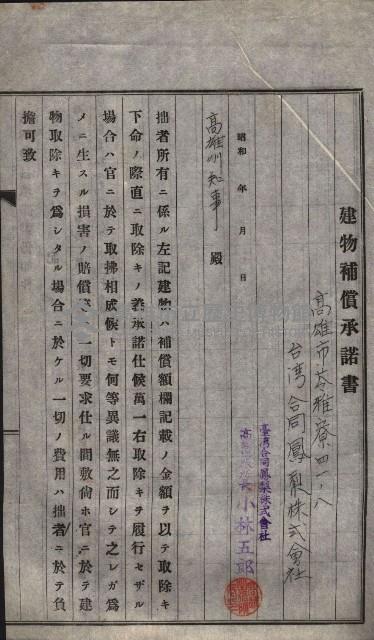 建物補償承諾書
高雄市苓雅寮四一八
台湾合同鳳梨株式會社
臺灣合同鳳梨株式會社
小林五郎
昭和　年　月　日
高雄州知事　殿
拙者所有ニ係ル左記建物ハ補償額欄記載ノ金額ヲ以テ取除キ
下命ノ際直ニ取除キノ義承諾仕候萬一右取除キヲ履行セザル
場合ハ官ニ於テ取拂相成候トモ何等異議無之而シテ之レガ爲
メニ生スル損害ノ賠償等一切要求仕ル間敷尙ホ官ニ於テ建
物取除キヲ爲シタル場合ニ於ケル一切ノ費用ハ拙者ニ於テ負
擔可致